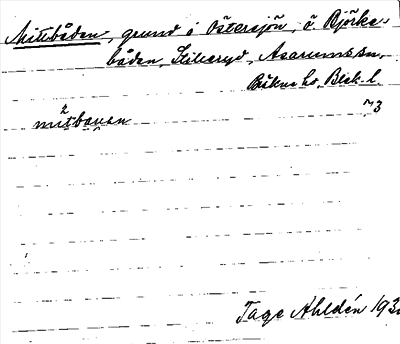 Mittbåden, grund i Östersjön, ö. Björke-
båden, Stilleryd, Asarums sn,
Bräkne hd, Blek. l.
73
mitbauen
Tage Ahldén 193